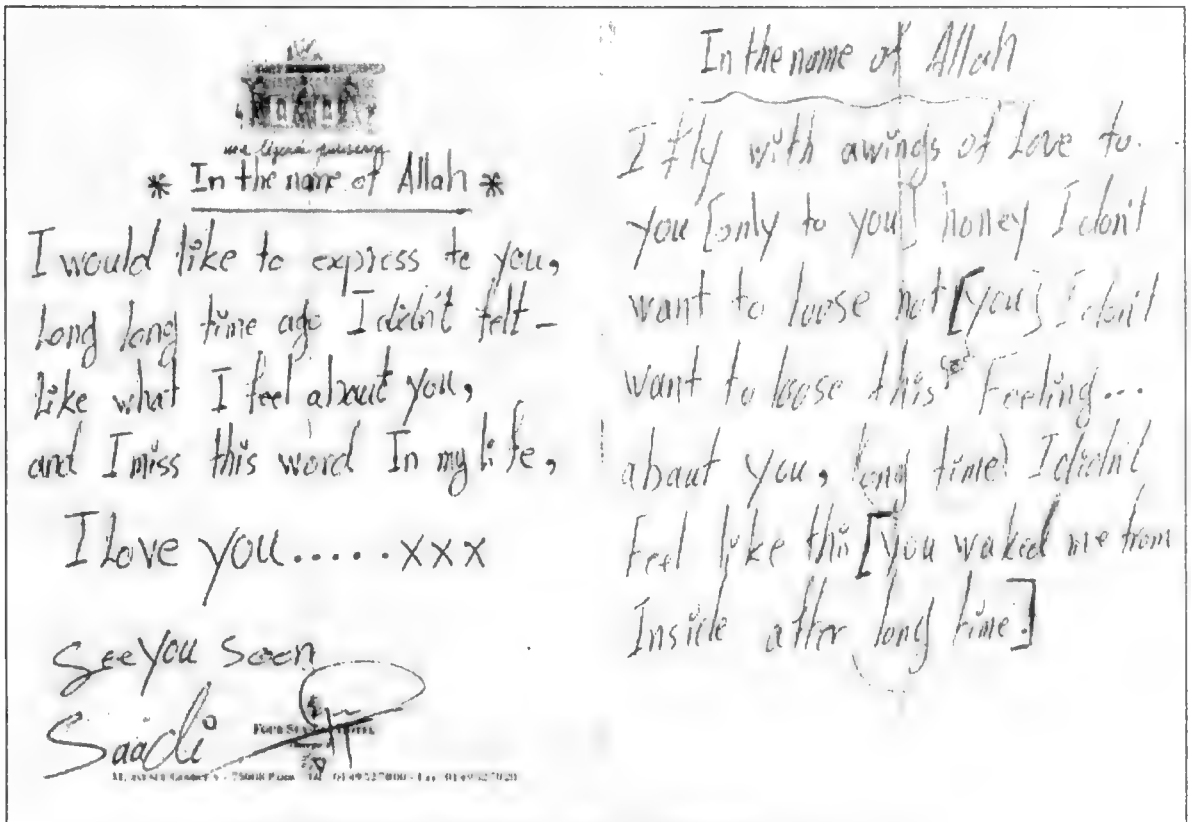 * In the name of Allah *
I would like to express to you,
Long long time ago I didn't felt -
Like what I feel about you,
and I miss this word In my life,
I Love you.....xxx
See you Soon
Saadi
In the name of Allah
I fly with awings of Love to.
you [only to you] honey I don't
want to loose not [you] I don't
want to loose this Feeling...
about you, long time I didn't
Feel like this [you waked me from
Inside after long time.]